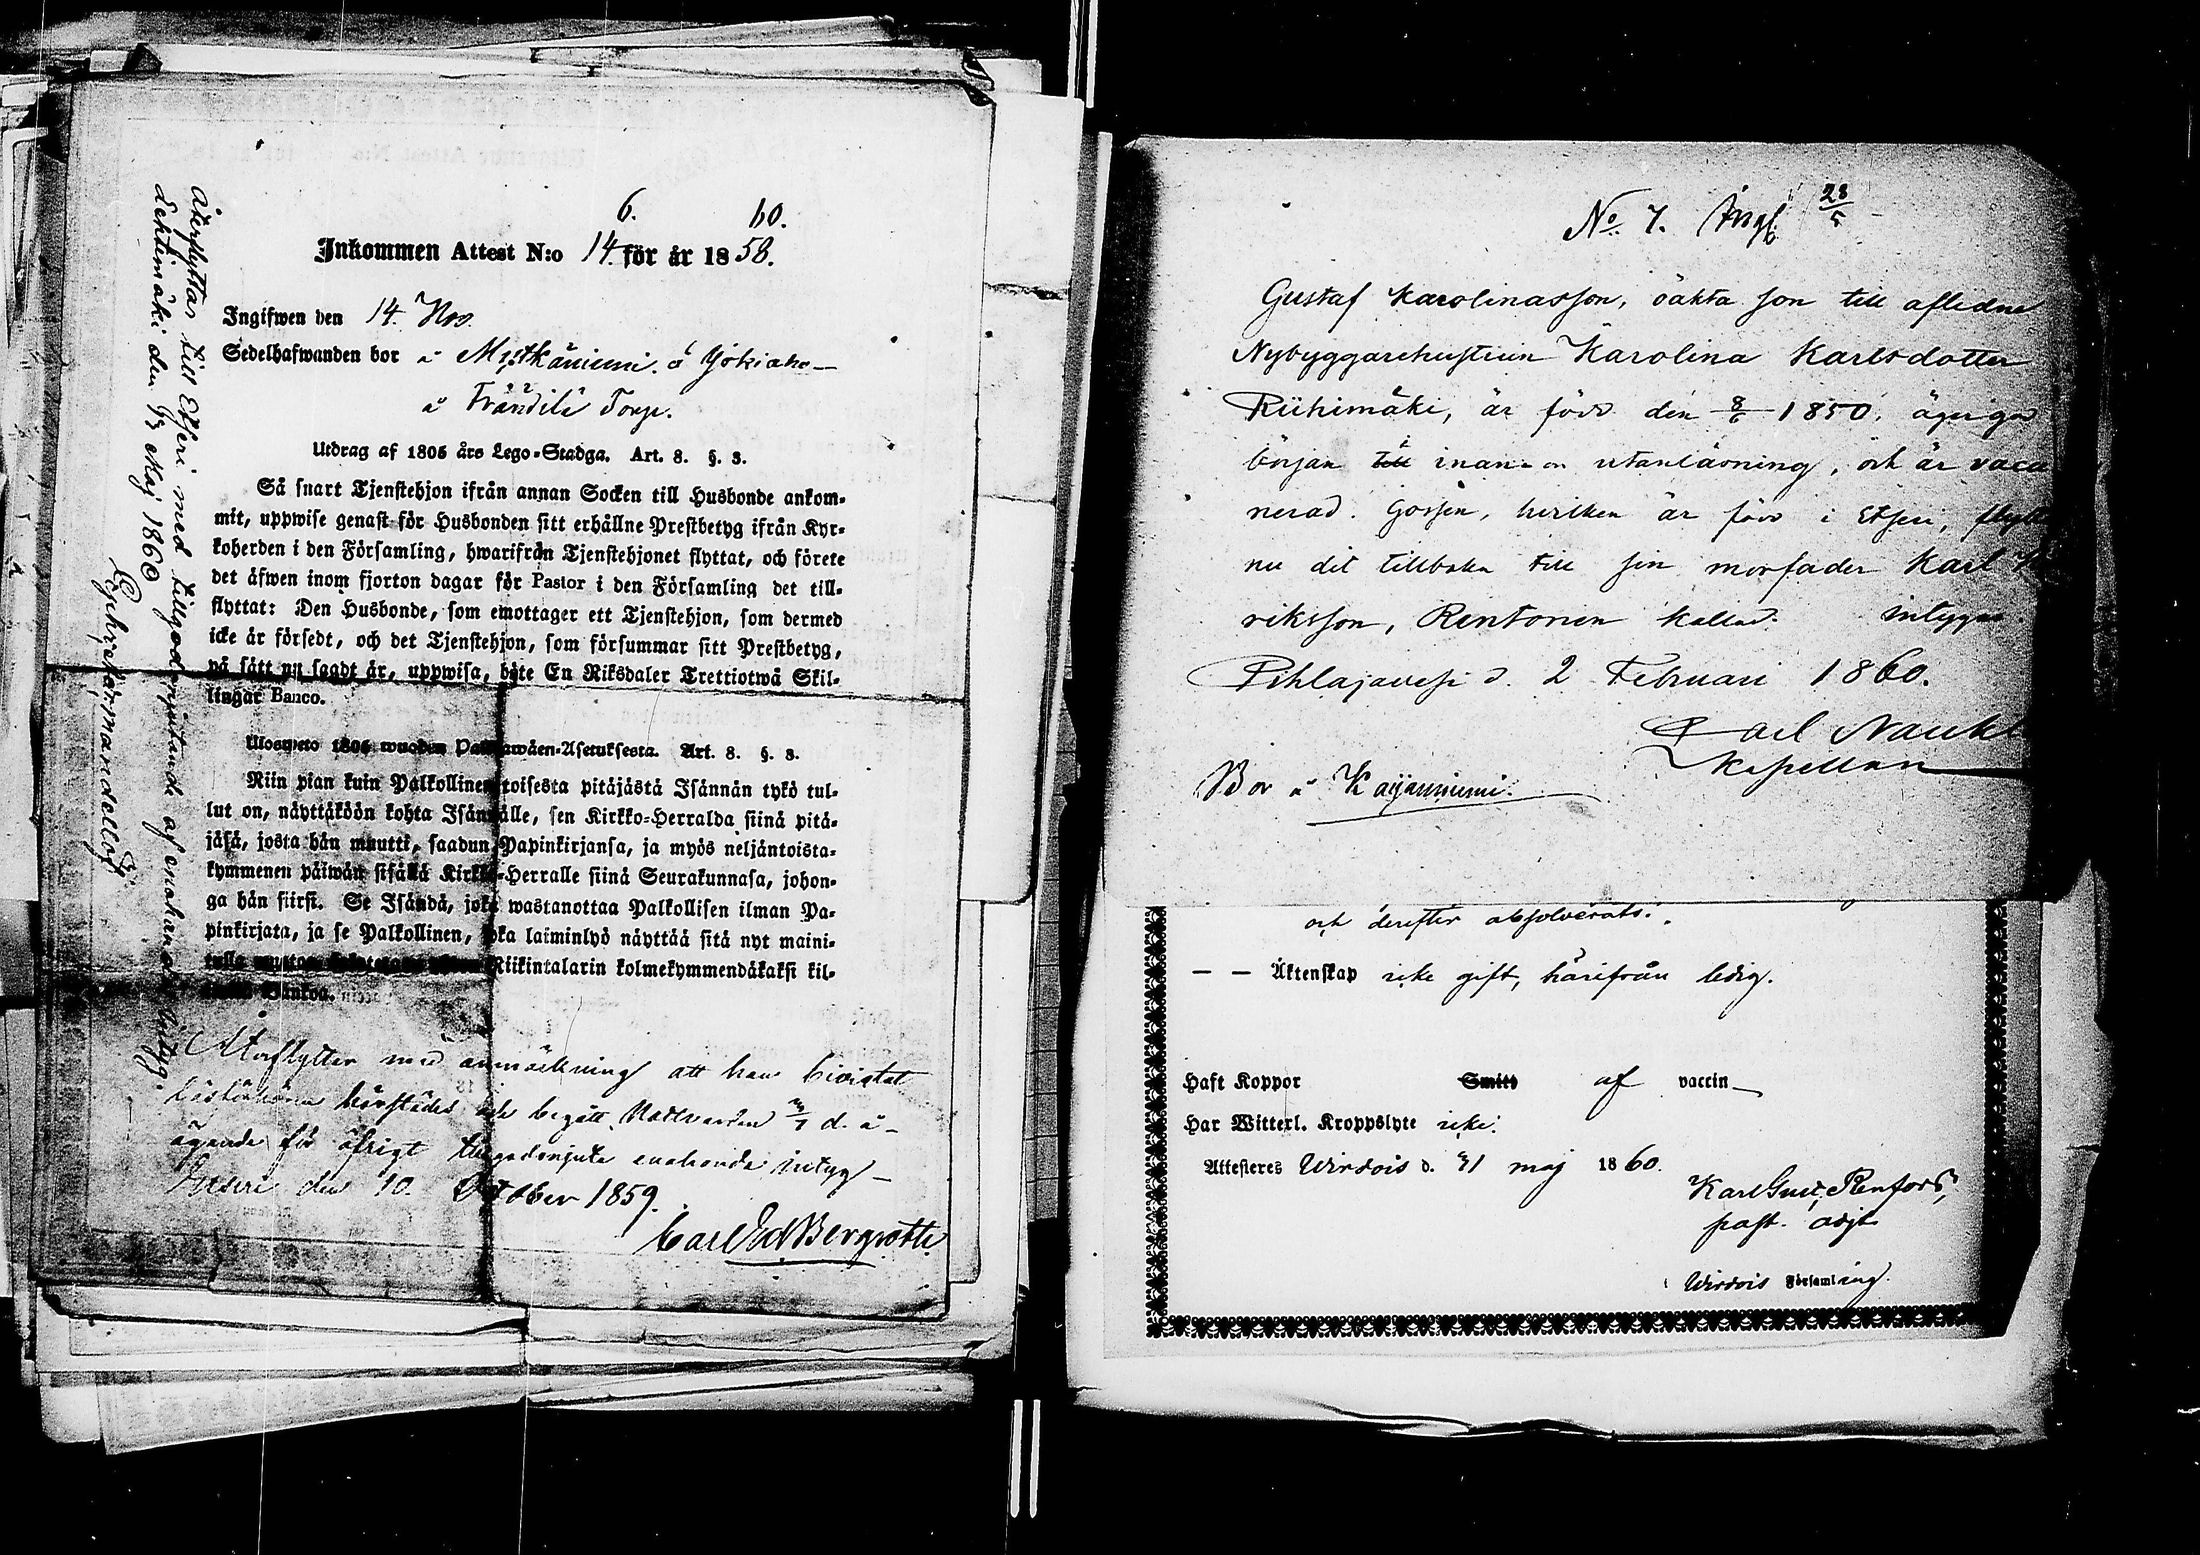 6. 60.
Inkommen Attest N:o 14. för år 1858.
Ingifwen den 14. Nov.
Sedelhafwanden bor å Mystkäniemi. å Jokiaho—
å Torp.
Utdrag af 1805 års Lego-Stadga. Art. 8. §. 3.
Så snart Tjenstehjon ifrån annan Socken till Husbonde ankom-
mit, uppwise genast för Husbonden sitt erhållne Prestbetyg ifrån Kyr-
koherden i den Församling, hwarifrån Tjenstehjonet flyttat, och förete
det äfwen inom fjorton dagar för Pastor i den Församling det till-
flyttat: Den Husbonde, som emottager ett Tjenstehjon, som dermed
icke är försedt, och det Tjenstehjon, som försummar sitt Prestbetyg,
på sätt nu sagdt är, uppwisa, böte En Riksdaler Trettiotwå Skil-
lingar Banco.
Ulosweto 1805 wuoden Palkkawäen-Asetuksesta. Art. 8. §. 3.
Niin pian kuin Palkollinen toisesta pitäjästä Isännän tykö tul-
lut on, näyttäköön kohta Isännälle, sen Kirkko-Herralda siinä pitä-
jäsä, josta hän muutti, saadun Papinkirjansa, ja myös neljäntoista-
kymmenen päiwän sisällä Kirkko-Herralle siinä Seurakunnasa, johon-
ga hän siirsi. Se Isändä, joka wastanottaa Palkollisen ilman Pa-
pinkirjata, ja se Palkollinen, joka laiminlyö näyttää sitä nyt maini-
tulla Riikintalarin kolmekymmendäkaksi kil-
Bankoa.
Återflyttar med anmärkning att han bivistat
läsförhören härstädes och begått Nattvarden d. å—
ägande för öfrigt tillgodonjuta enahanda intyg—
Etseri den 10. October 1859.
Carl Ed Bergroth
återflyttar till Etseri med tillgodonjutande af enahanda intyg.
Lehtimäki den Maj 1860
Ephr. Hårmandellof
No. 7. Ingf. 28/5
Gustaf Karolinasson, oäkta son till aflidne
Nybyggarehustrun Karolina Karlsdotter
Riihimäki, är född den 8/6 1850, äger god
början till i inan- on utanläsning, och är vacci
nerad. Gossen, hvilken är född i Etseri, flytta
nu dit tillbaka till sin morfader Karl
riksson, Rentonen kallad. intygar
Pihlajavesi d. 2 Februari 1860.
Carl
Kapellan
Bor å Kaijanniemi.
och derefter absolverats.
— — Äktenskap icke gift, härifrån ledig.
Haft Koppor Smitt af vaccin—
Har Witterl. Kroppslyte icke.
Attesteres Wirdois d. 31 maj 1860.
Karl Gust. Renfors,
past. adjt
i Wirdois Församling.